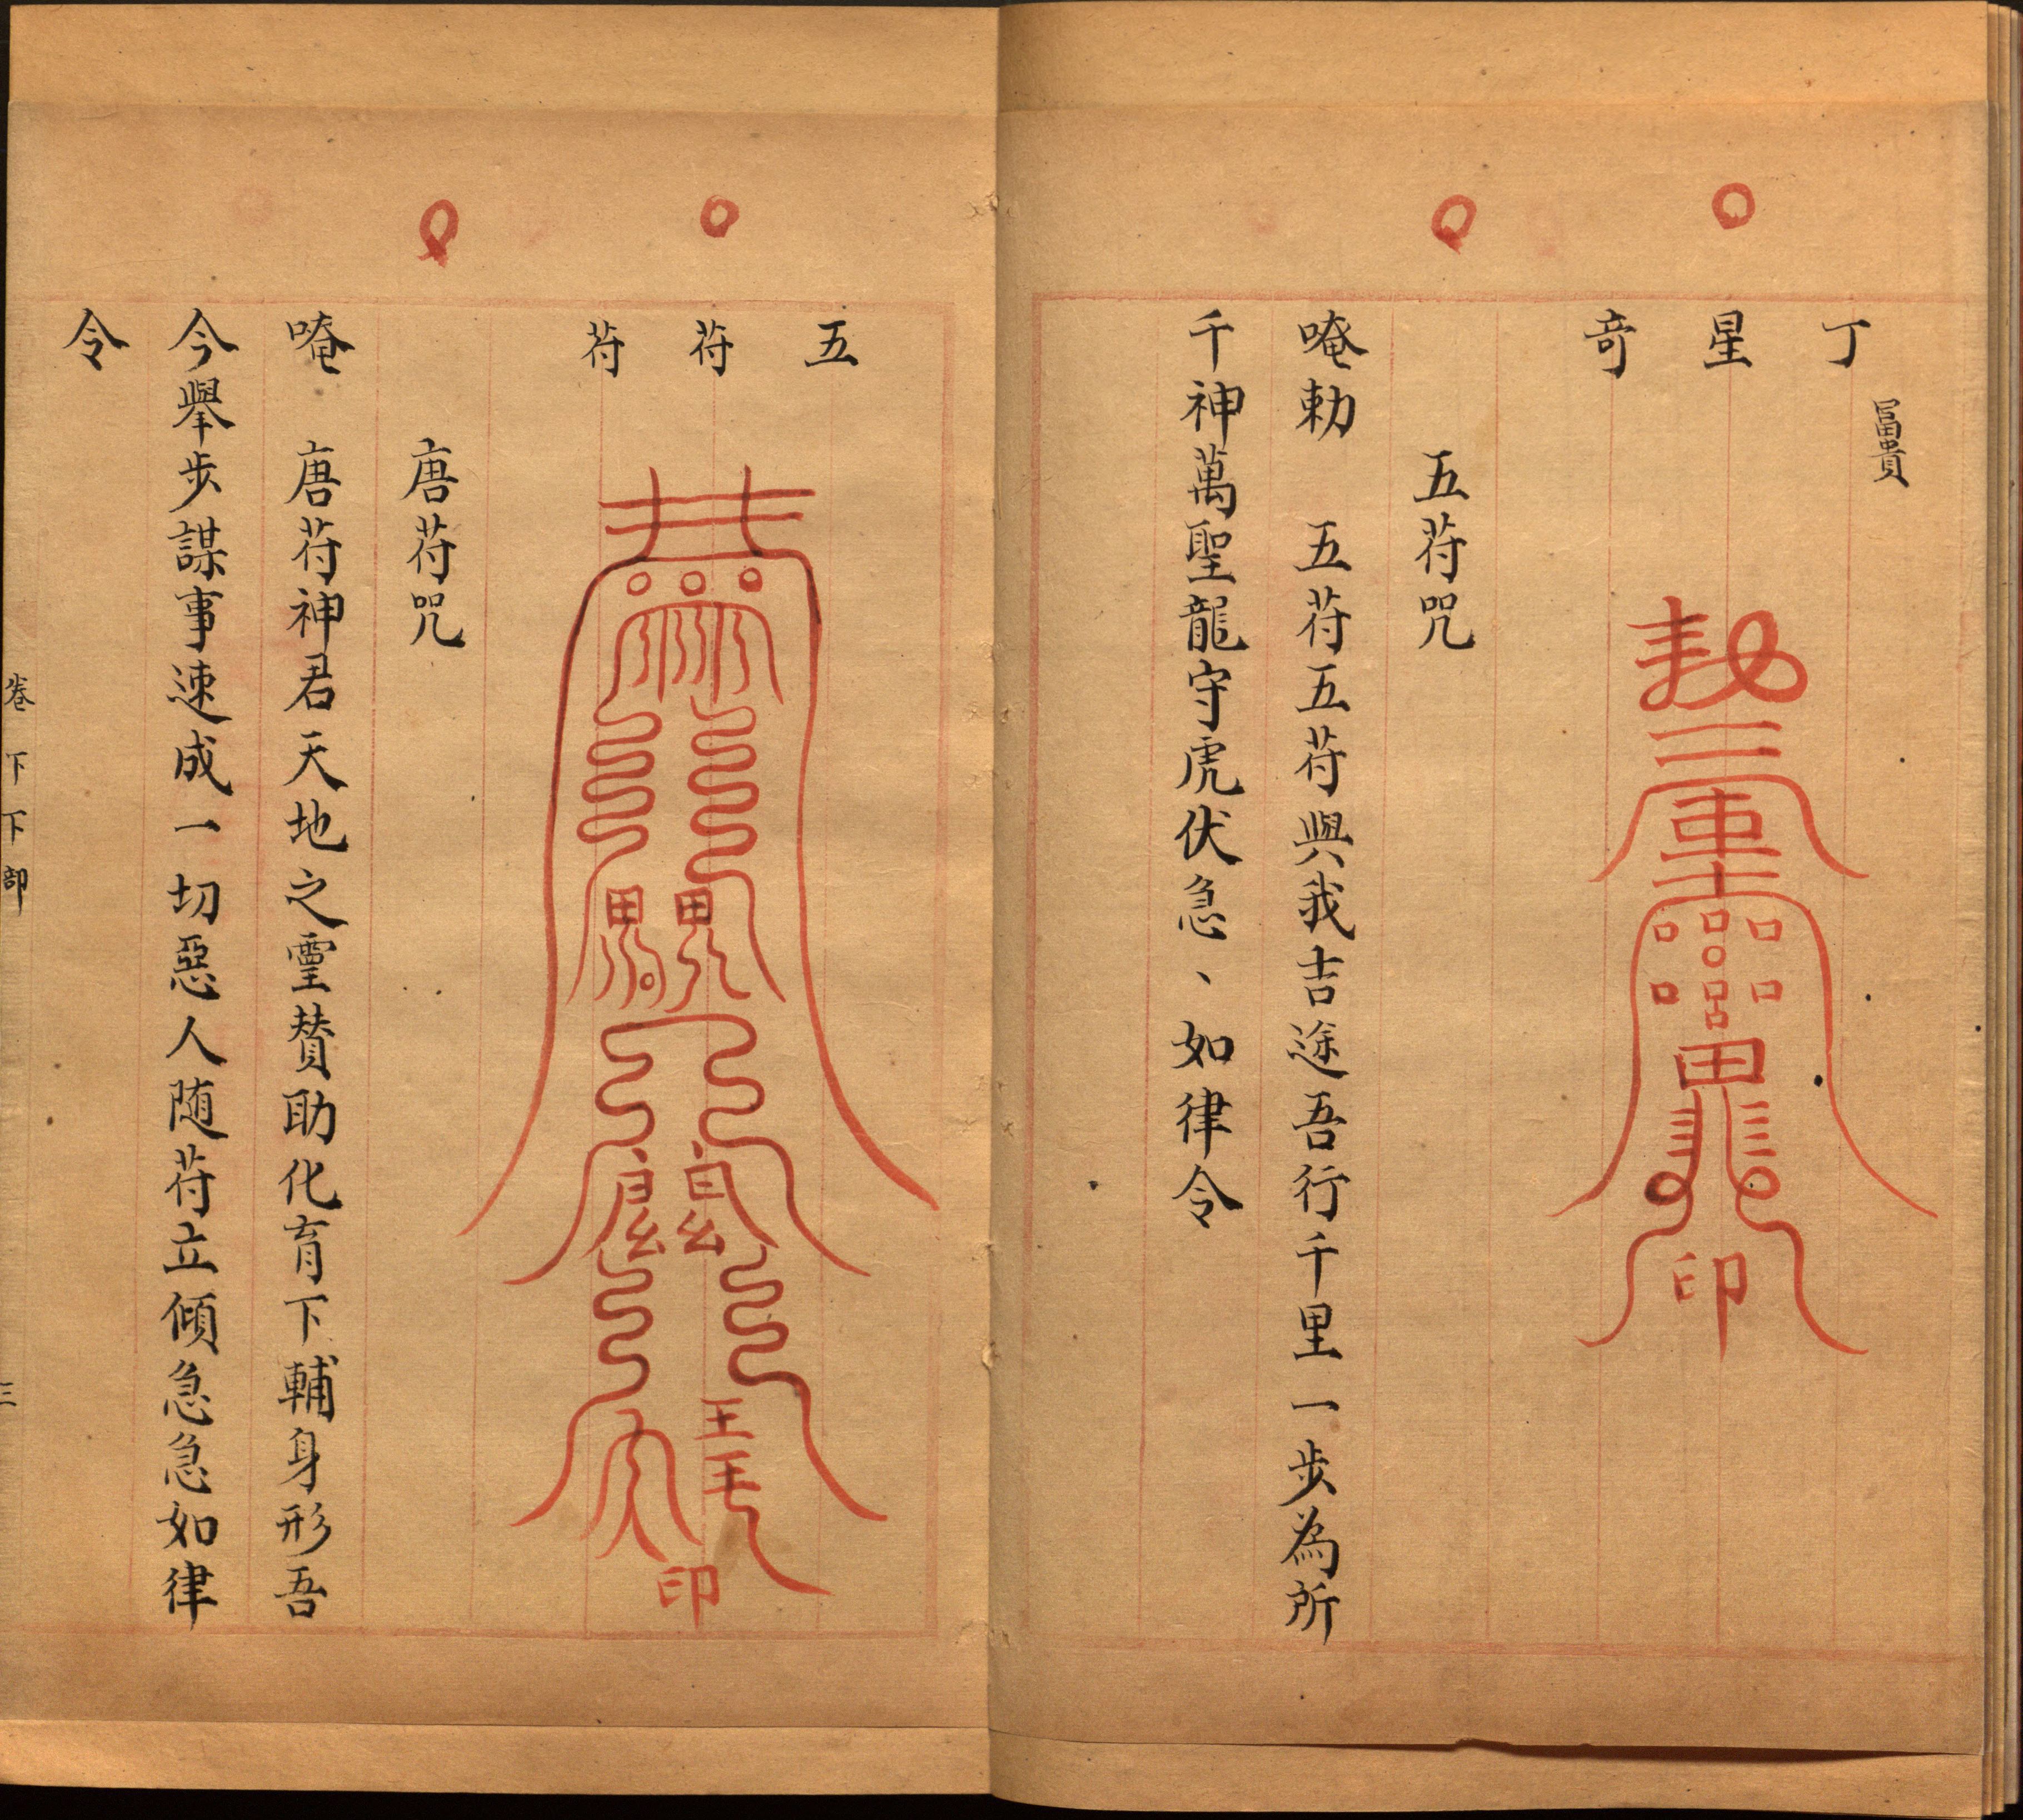 冨貴
丁星竒
印
五苻咒
唵勅 五苻五苻與我吉途吾行千里一步為所
千神萬聖龍守虎伏急、如律令
五苻苻
印
唐苻咒
唵 唐苻神君天地之靈賛助化育下輔身形吾
今舉步謀事速成一切惡人随苻立傾急急如律
令
卷下下部 三